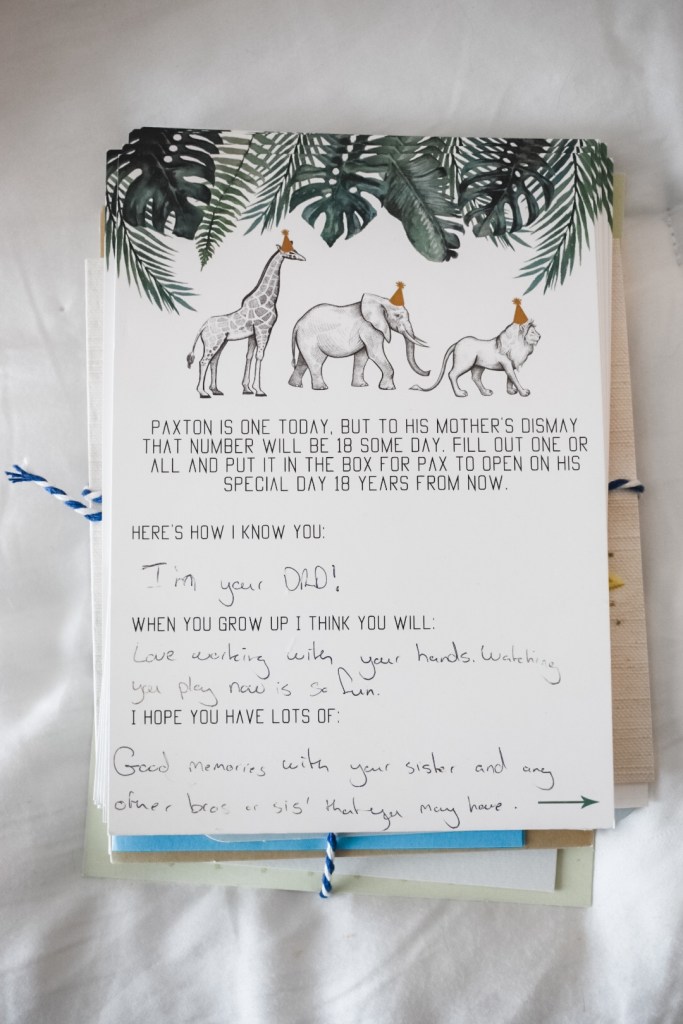 PAXTON IS ONE TODAY, BUT TO HIS MOTHER'S DISMAY
THAT NUMBER WILL BE 18 SOME DAY. FILL OUT ONE OR
ALL AND PUT IT IN THE BOX FOR PAX TO OPEN ON HIS
SPECIAL DAY 18 YEARS FROM NOW.
HERE'S HOW I KNOW YOU:
I'm your DAD!
WHEN YOU GROW UP I THINK YOU WILL:
Love working with your hands. Watching
you play now is so fun.
I HOPE YOU HAVE LOTS OF:
Good memories with your sister and any
other bros or sis' that you may have.